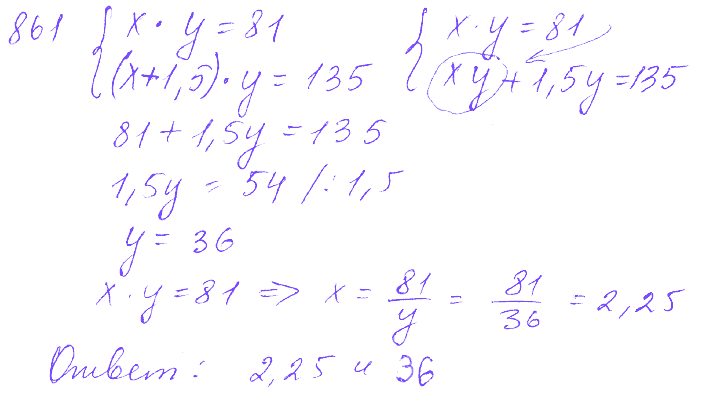 861 { x · y = 81 { x · y = 81
(x+1,5) · y = 135 xy + 1,5y = 135
81 + 1,5y = 135
1,5y = 54 /:1,5
y = 36
x · y = 81 => x = 81/y = 81/36 = 2,25
Ответ: 2,25 и 36